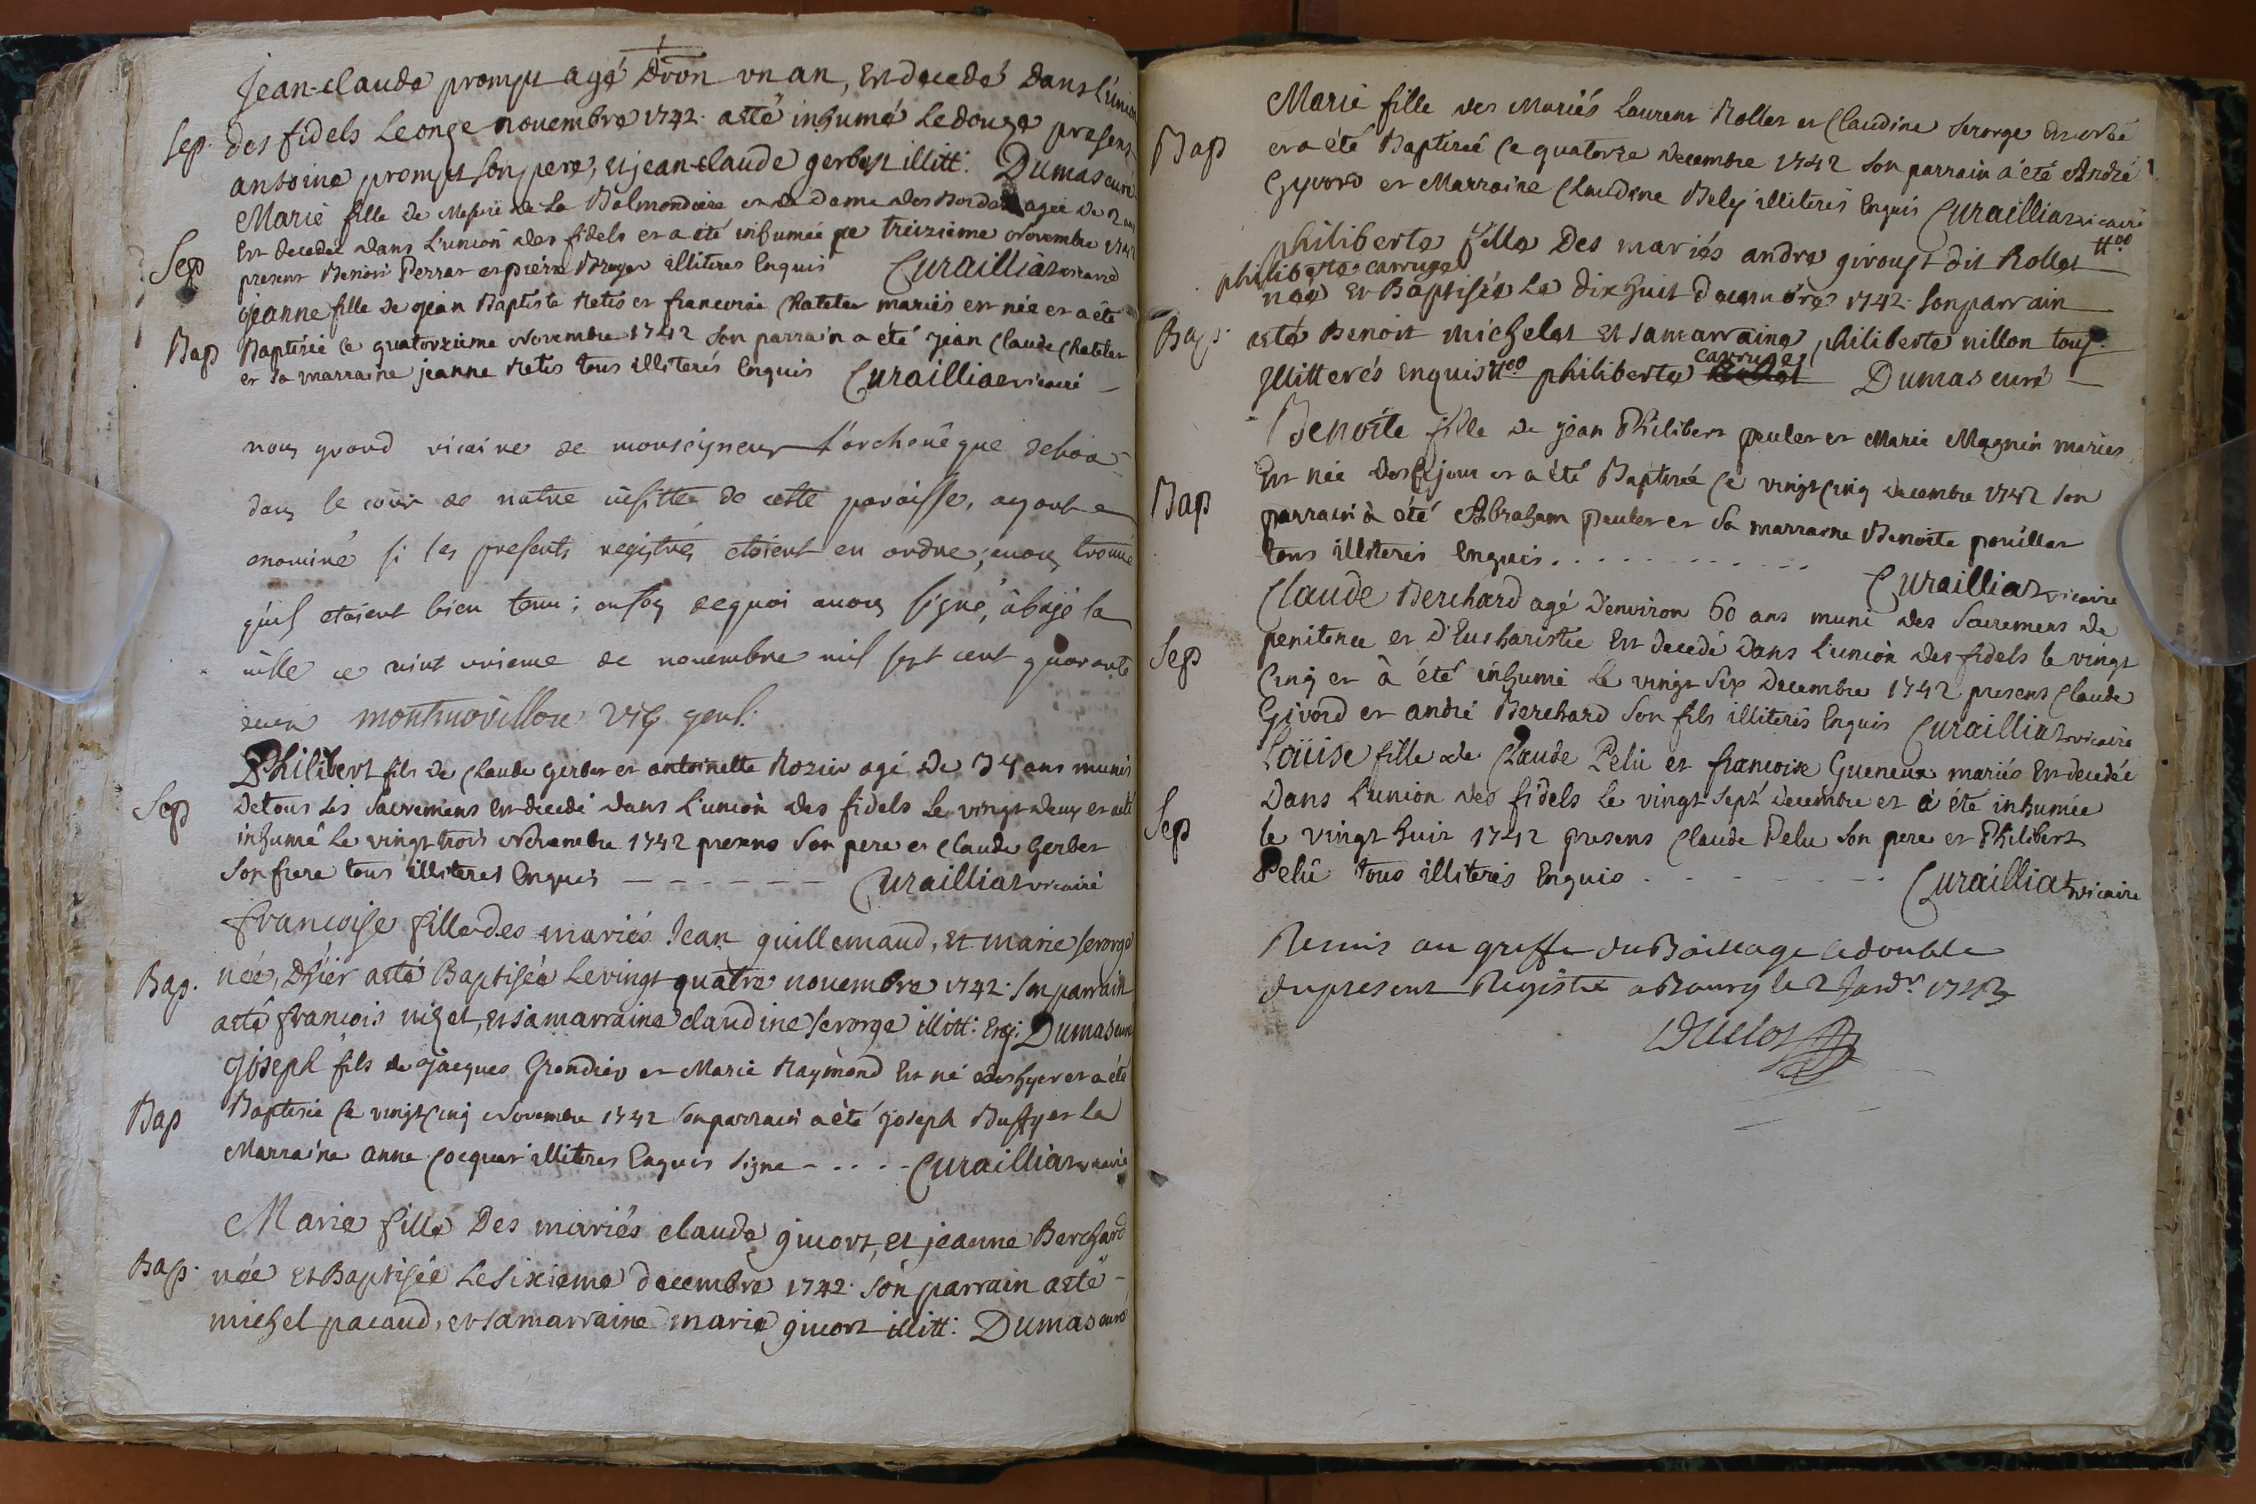 Jean-claude prompt agé d'von vn an, est decedé dans l'union
Sep. des fidels le onze nouembre 1742. a esté inhumé le douze presens
antoine prompt son pere, et jean-claude gerbet illitt: Dumas curé
Marie fille de Messire de La Balmondiere et de dame des Bordes agée de 2 ans
Sep Est decedée dans L'union des fidels et a été inhumée ce treizieme Novembre 1742
present Benoit Perrat et pierre Broyer illiteres Enquis Curailliat vicaire
jeanne fille de jean Baptiste Retis et francoise Chatelet mariés est née et a été
Bap Baptisée ce quatorzieme Novembre 1742 son parrain a été jean Claude Chatelet
et sa marraine jeanne Retis tous illiterés Enquis Curailliat vicaire
nous grand vicaire de monseigneur l'archeuêque de
dans le cour de nattre uisitte de cette paroisse, ayant e
xaminé si les presents registres etoient en ordre, auons trouué
qu'ils etoient bien tenu; en foy de quoi auons signé, à bagé la
uille ce vint vnieme de nouembre mil sept cent quarante
deux montmorillon vig genl.
Philibert fils de Claude Gerbet et antoinette Rozier agé de 34 ans munis
Sep De tous les Sacremens est decedé dans L'union des fidels le vingt deux et a été
inhumé le vingt trois Novembre 1742 presens son pere et Claude Gerbet
son frere tous illiteres Enquis - - - - - - Curailliat vicaire
francoise fille des mariés Jean guillemaud, et marie serorge
Bap. née, d'hier a esté Baptisée le vingt quatre nouembre 1742. son parrain
a esté francois nizet, et sa marraine claudine serorge illitt: Enq: Dumas curé
Joseph fils de jacques Grendier et Marie Raymond Est né hyer et a été
Bap Baptisé ce vingt cinq Novembre 1742 son parrain a été joseph Buffy et la
Marraine anne Cocquet illiteres Enquis signe - . . . - Curailliat vicaire
Marie fille des mariés claude giuort, et jeanne Berchard
Bap. née et Baptisée le sixieme decembre 1742. son parrain a esté -
michel pacaud, et sa marraine marie giuort illitt: Dumas curé
Marie fille des Mariés Laurent Rollet et Claudine Serorge Est née
Bap et a été Baptisée ce quatorze decembre 1742 son parrain a été André
Gyvord et Marraine Claudine Bely illiterés Enquis Curailliat vicaire
philiberte fille des mariés andre giroust dit Rollet
philiberte carruge
née et Baptisée le dix huit decembre 1742. son parrain
Bap. a esté Benoit michelet et sa marraine philiberte nillon tous
carruge
jllitterés enquis philiberte Dumas curé
Benoite fille de jean Philibert peulet et Marie Magnin mariés
Bap Est née de ce jour et a été Baptisée ce vingt cinq decembre 1742 son
parrain à été Abraham peulet et sa marraine Benoite poüillat
tous illiterés Enquis . . . . . . . . . . . . Curailliat vicaire
Claude Berchard agé d'environ 60 ans muni des Sacremens de
Sep penitence et d'Eucharistie Est decedé dans l'union des fidels le vingt
Cinq et à été inhumé le vingt six decembre 1742 presens Claude
Givord et andré Berchard son fils illiterés Enquis Curailliat vicaire
Loüise fille de Claude Pelu et francoise Gueneux mariés Est decedée
Sep Dans l'union des fidels le vingt sept decembre et à été inhumée
le vingt huit 1742 presens Claude Pelu son pere et Philibert
Pelû tous illiterés Enquis . - . . - . . - . . Curailliat vicaire
Remis au greffe du Bailliage le double
du present Registre a Bourg le 2 Janvr. 1743
Duclos